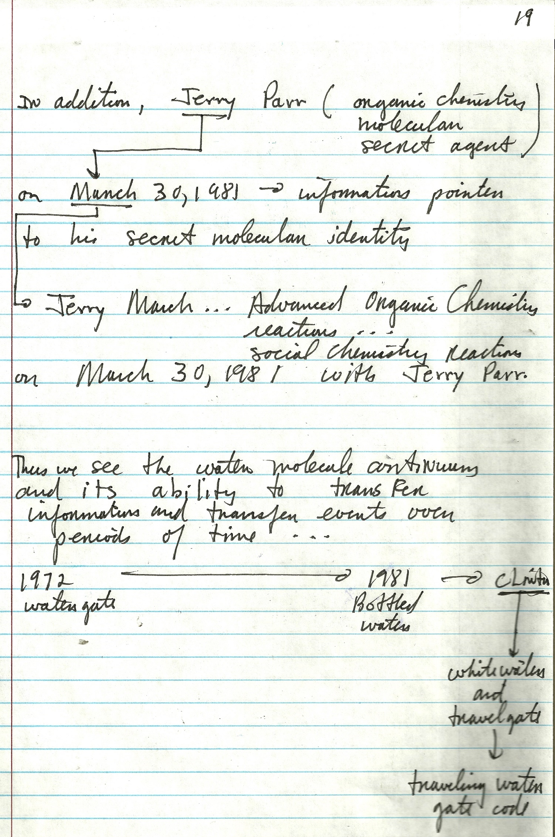 19
In addition, Jerry Parr ( organic chemistry
molecular
secret agent )
on March 30, 1981 → information pointer
to his secret molecular identity
→ Jerry March ... Advanced Organic Chemistry
reactions ...
social chemistry reactions
on March 30, 1981 with Jerry Parr.
Thus we see the water molecule continuum
and its ability to transfer
information and transfer events over
periods of time ...
1972 → 1981 → Clinton
watergate Bottled
water
whitewater
and
travelgate
↓
traveling water
gate code